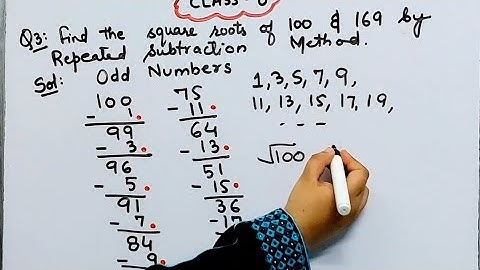 CLASS-8
Q3: Find the square roots of 100 & 169 by
Repeated Subtraction Method.
Sol: Odd Numbers
1, 3, 5, 7, 9,
11, 13, 15, 17, 19,
- - -
100
- 1
99
- 3
96
- 5
91
- 7
84
- 9
75
- 11
64
- 13
51
- 15
36
- 17
√100